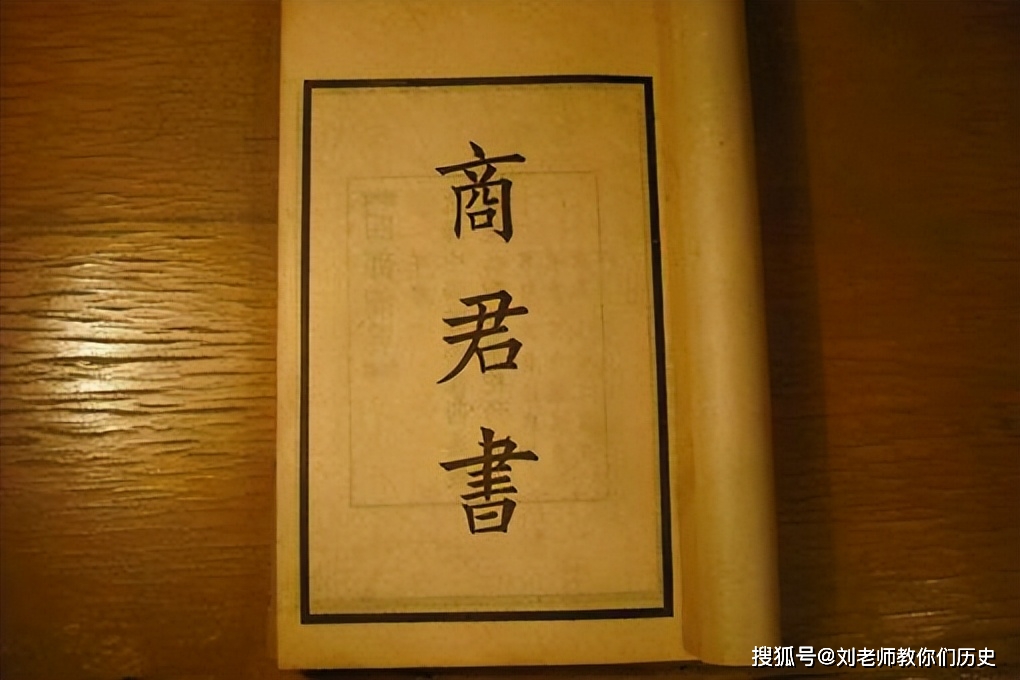 商君書
搜狐号@刘老师教你们历史